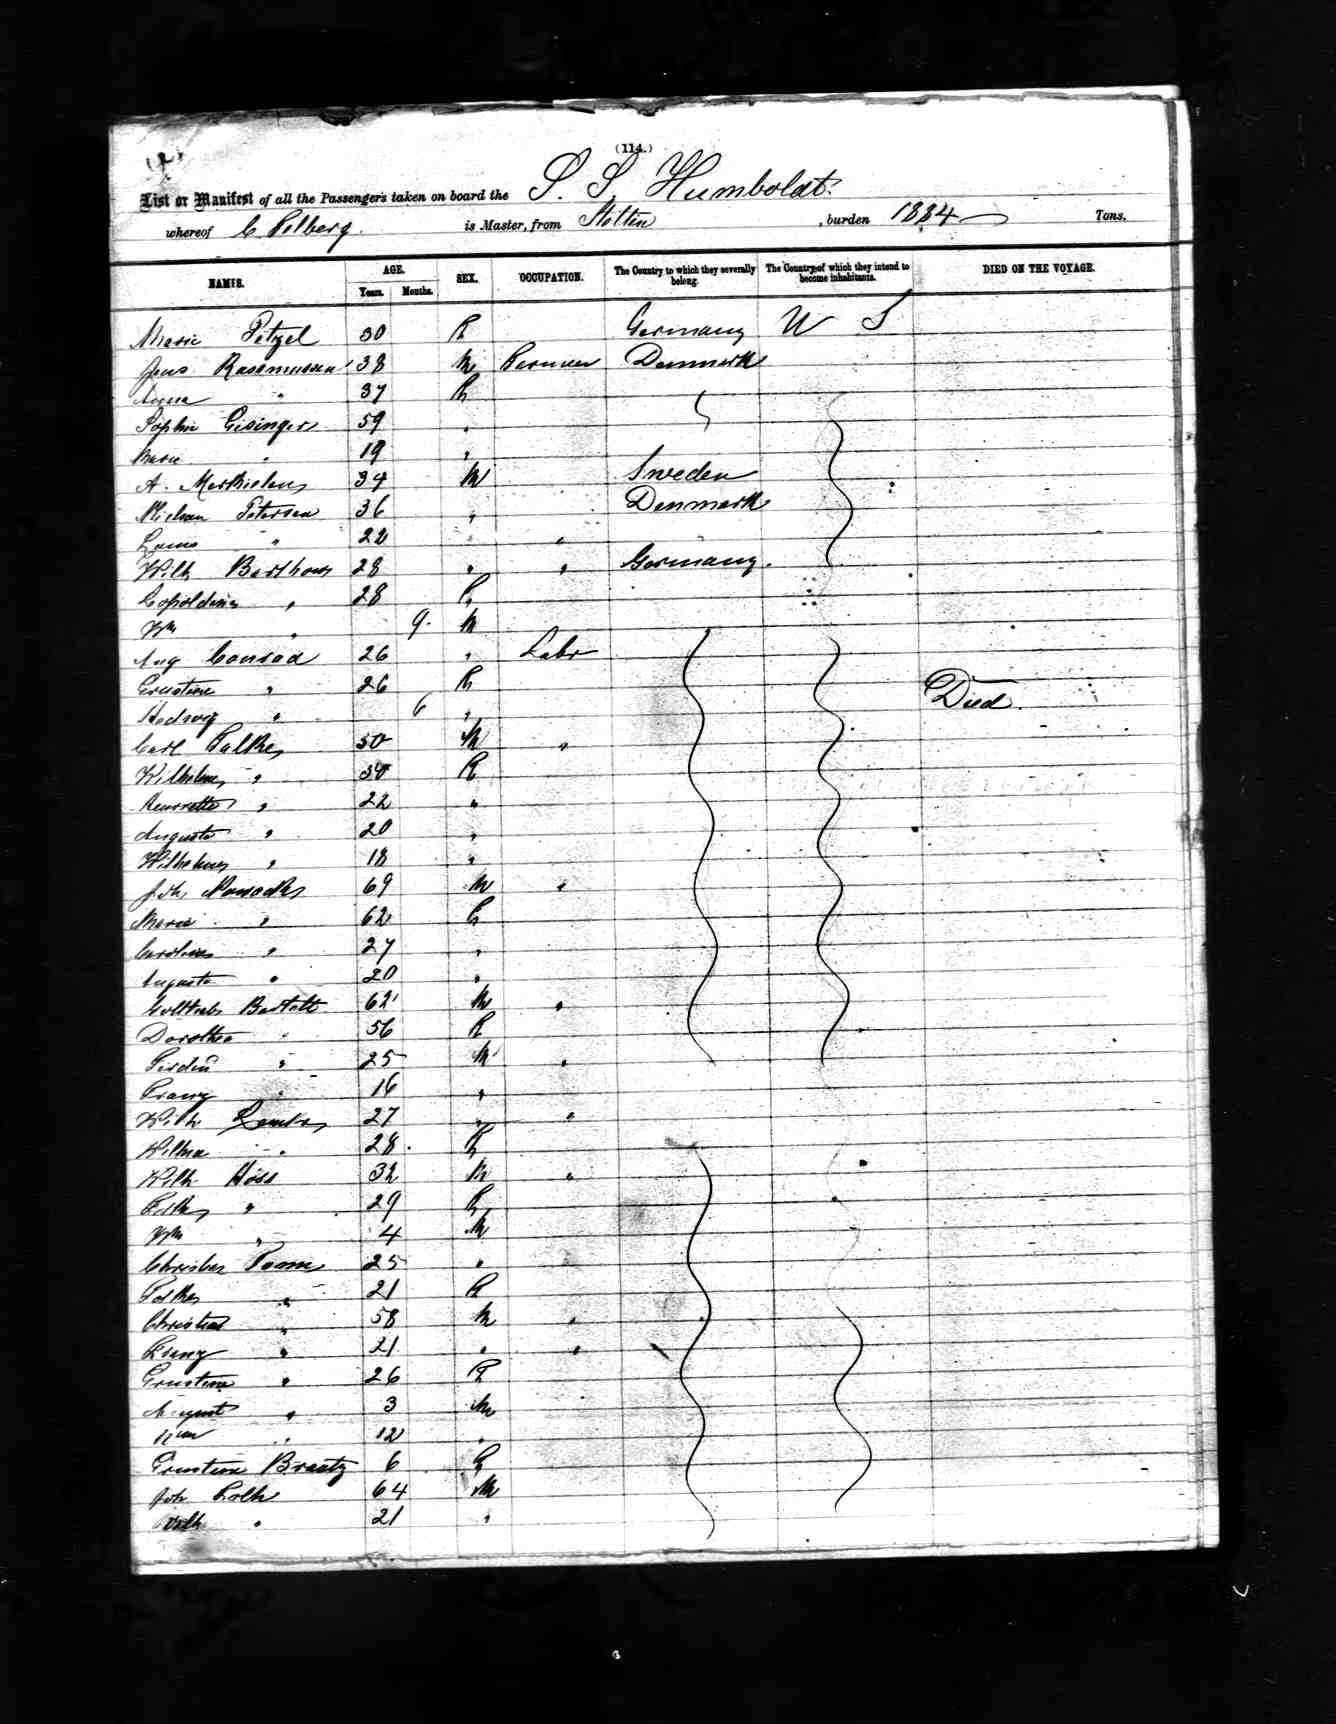 (114.)
List or Manifest of all the Passengers taken on board the S. S. Humboldt.
whereof C Polberg is Master, from Stettin , burden 1884 Tons.
NAMES. AGE. SEX. OCCUPATION. The Country to which they severally belong. The Country of which they intend to become inhabitants. DIED ON THE VOYAGE.
Years. Months.
Marie Petzel 30 F Germany U S
Jens Rassmussen 38 M Farmer Denmark
Anna " 37 F
Sophie Gisinger 59 "
Marie " 19 "
A. 34 M Sweden
Nielson Petersen 36 " Denmark
22 " "
Wilh Barthow 28 " " Germany.
Leopoldine " 28 F
Wm " 9. M
Aug Conrad 26 " Labr
Ernstine " 26 F
Hedwig " 6 " Died.
Carl Falke 50 M "
Wilhelmine " F
Henriette " 22 "
Auguste " 20 "
Wilhelmine " 18 "
Joh. 69 M "
Marie " 62 F
Caroline " 27 "
Auguste " 20 "
Gottlieb Bartelt 62 M "
Dorothea " 56 F
Ferdin " 25 M "
Franz " 16 "
Wilh 27 " "
Wilma " 28. F
Wilh. Höss 32 M "
" 29 F
Wm " 4 M
25 "
" 21 F
Christian " 58 M "
Franz " 21 " "
Ernstine " 26 F
August " 3 M
" 12 "
Ernstine Braatz 6 F
Joh 64 M
Wilh " 21 "